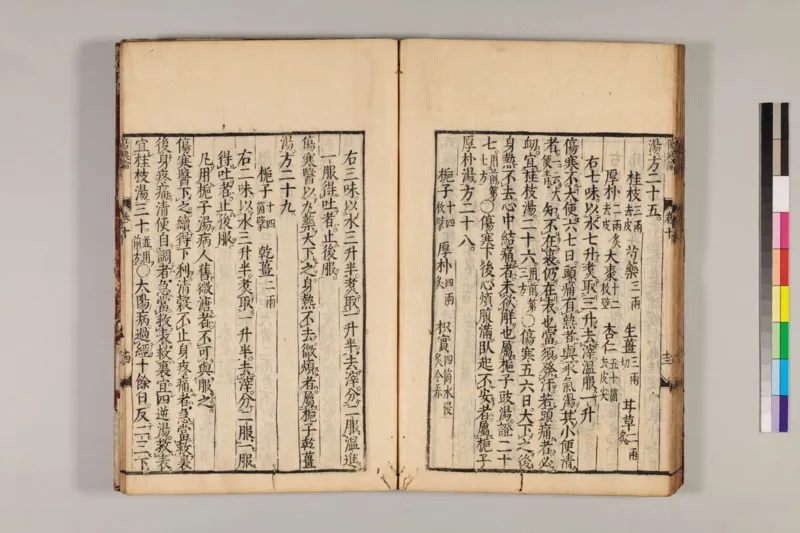 湯方二十五。
桂枝三兩去皮 芍藥三兩 生薑三兩切 甘草二兩炙
厚朴二兩炙去皮 大棗十二枚擘 杏仁五十箇去皮尖
右七味以水七升煑取三升去滓溫服一升
傷寒不大便六七日頭痛有熱者與承氣湯其小便清
者知不在裏仍在表也當須發汗若頭痛者必
衂宜桂枝湯二十六用前第三方○傷寒五六日大下之後
身熱不去心中結痛者未欲解也屬梔子豉湯證二十
七用前第七方○傷寒下後心煩腹滿臥起不安者屬梔子
厚朴湯方二十八。
梔子十四枚擘 厚朴四兩炙 枳實四箇水浸炙令赤
右三味以水三升半煑取一升半去滓分二服溫進
一服得吐者止後服
傷寒醫以丸藥大下之身熱不去微煩者屬梔子乾薑
湯方二十九
梔子十四箇擘 乾薑二兩
右二味以水三升半煑取一升半去滓分二服一服
得吐者止後服
凡用梔子湯病人舊微溏者不可與服之
傷寒醫下之續得下利清穀不止身疼痛者急當救裏
後身疼痛清便自調者急當救表救裏宜四逆湯救表
宜桂枝湯三十並用前方○太陽病過經十餘日反二三下